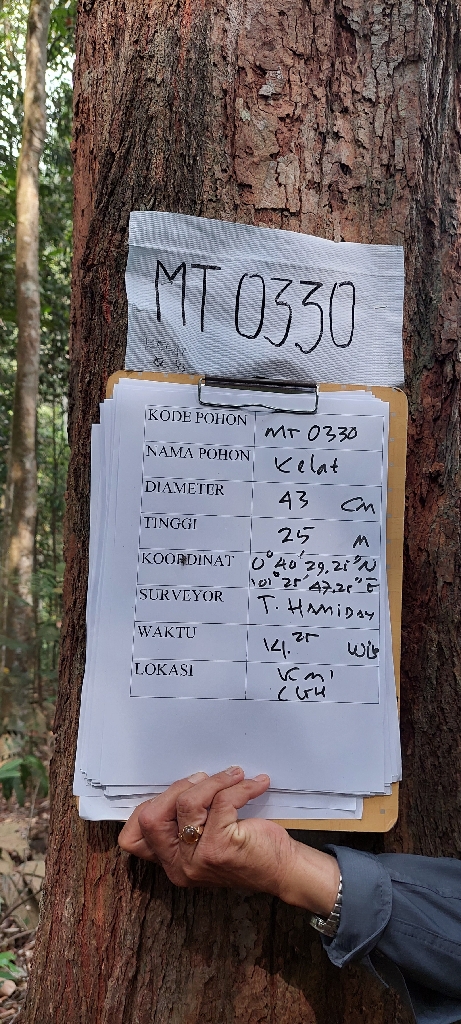 MT 0330
KODE POHON MT 0330
NAMA POHON Kelat
DIAMETER 43 Cm
TINGGI 25 M
KOORDINAT 0° 40' 29,21" N
101° 25' 47,21" E
SURVEYOR T. HAMIDAY
WAKTU 14.25 Wib
LOKASI